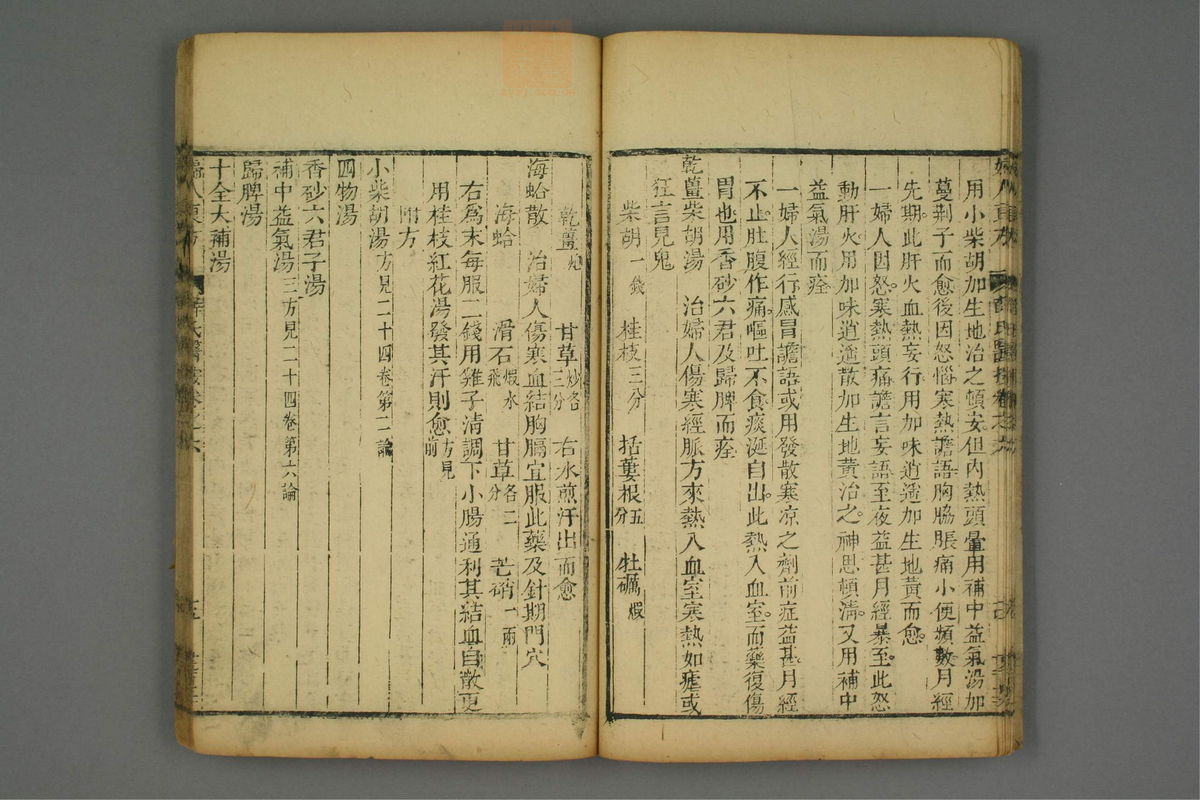 用小柴胡加生地治之頓安但内熱頭暈用補中益氣湯加
蔓荆子而愈後因怒惱寒熱譫語胸脇脹痛小便頻數月經
先期此肝火血熱妄行用加味逍遥加生地黃而愈
一婦人因怒寒熱頭痛譫言妄語至夜益甚月經暴至此怒
動肝火用加味逍遥散加生地黃治之神思頓清又用補中
益氣湯而痊
一婦人經行感冒譫語或用發散寒凉之劑前症益甚月經
不止肚腹作痛嘔吐不食痰涎自出此熱入血室而藥復傷
胃也用香砂六君及歸脾而痊
乾薑柴胡湯　治婦人傷寒經脈方來熱入血室寒熱如瘧或
狂言見鬼
柴胡一錢　桂枝三分　括蔞根五分　牡礪煆
乾薑炮　甘草炒各三分　右水煎汗出而愈
海蛤散　治婦人傷寒血結胸膈宜服此藥及針期門穴
海蛤　滑石煆水飛　甘草各二分　芒硝一兩
右為末每服二錢用雞子清調下小腸通利其結血自散更
用桂枝紅花湯發其汗則愈方見前
附方
小柴胡湯方見二十四卷第二論
四物湯
香砂六君子湯
補中益氣湯三方見二十四卷第六論
歸脾湯
十全大補湯